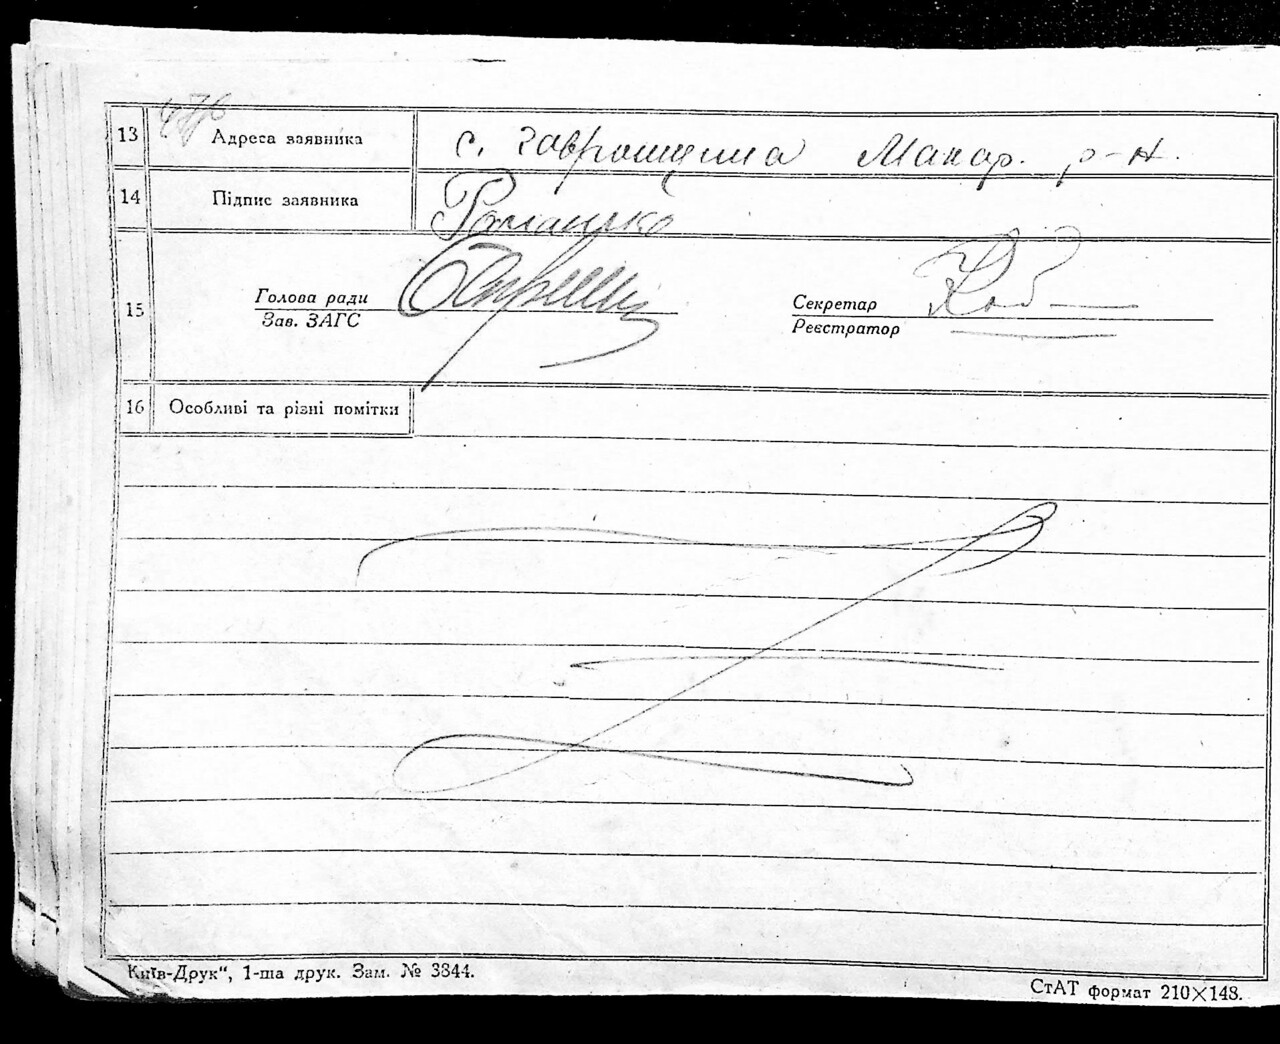 476
13 Адреса заявника с. Гаврощина Макар. р-н.
14 Підпис заявника Романчко
15 Голова ради Секретар
Зав. ЗАГС Реєстратор
16 Особливі та різні помітки
Київ-Друк“, 1-ша друк. Зам. № 3344.
СтАТ формат 210×148.